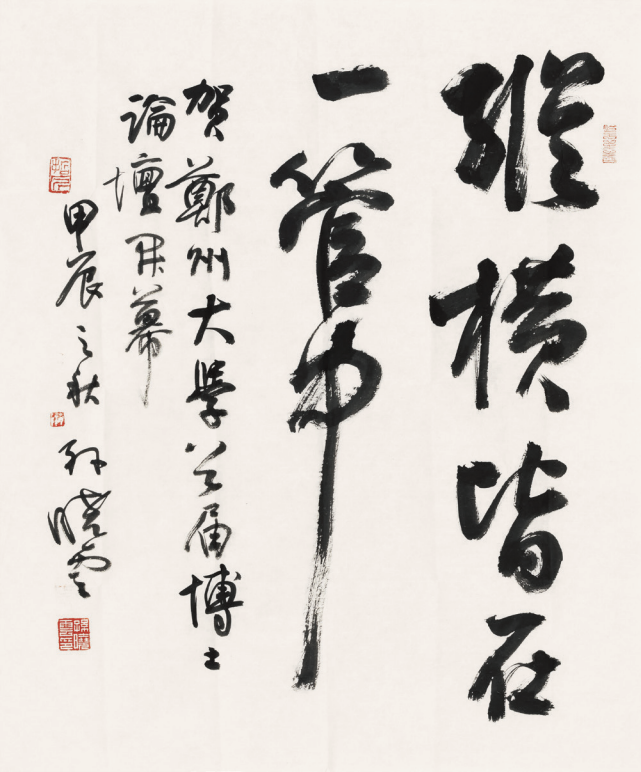 縱橫皆在
一管中
賀鄭州大學首届博士
論壇開幕
甲辰之秋
孫曉雲